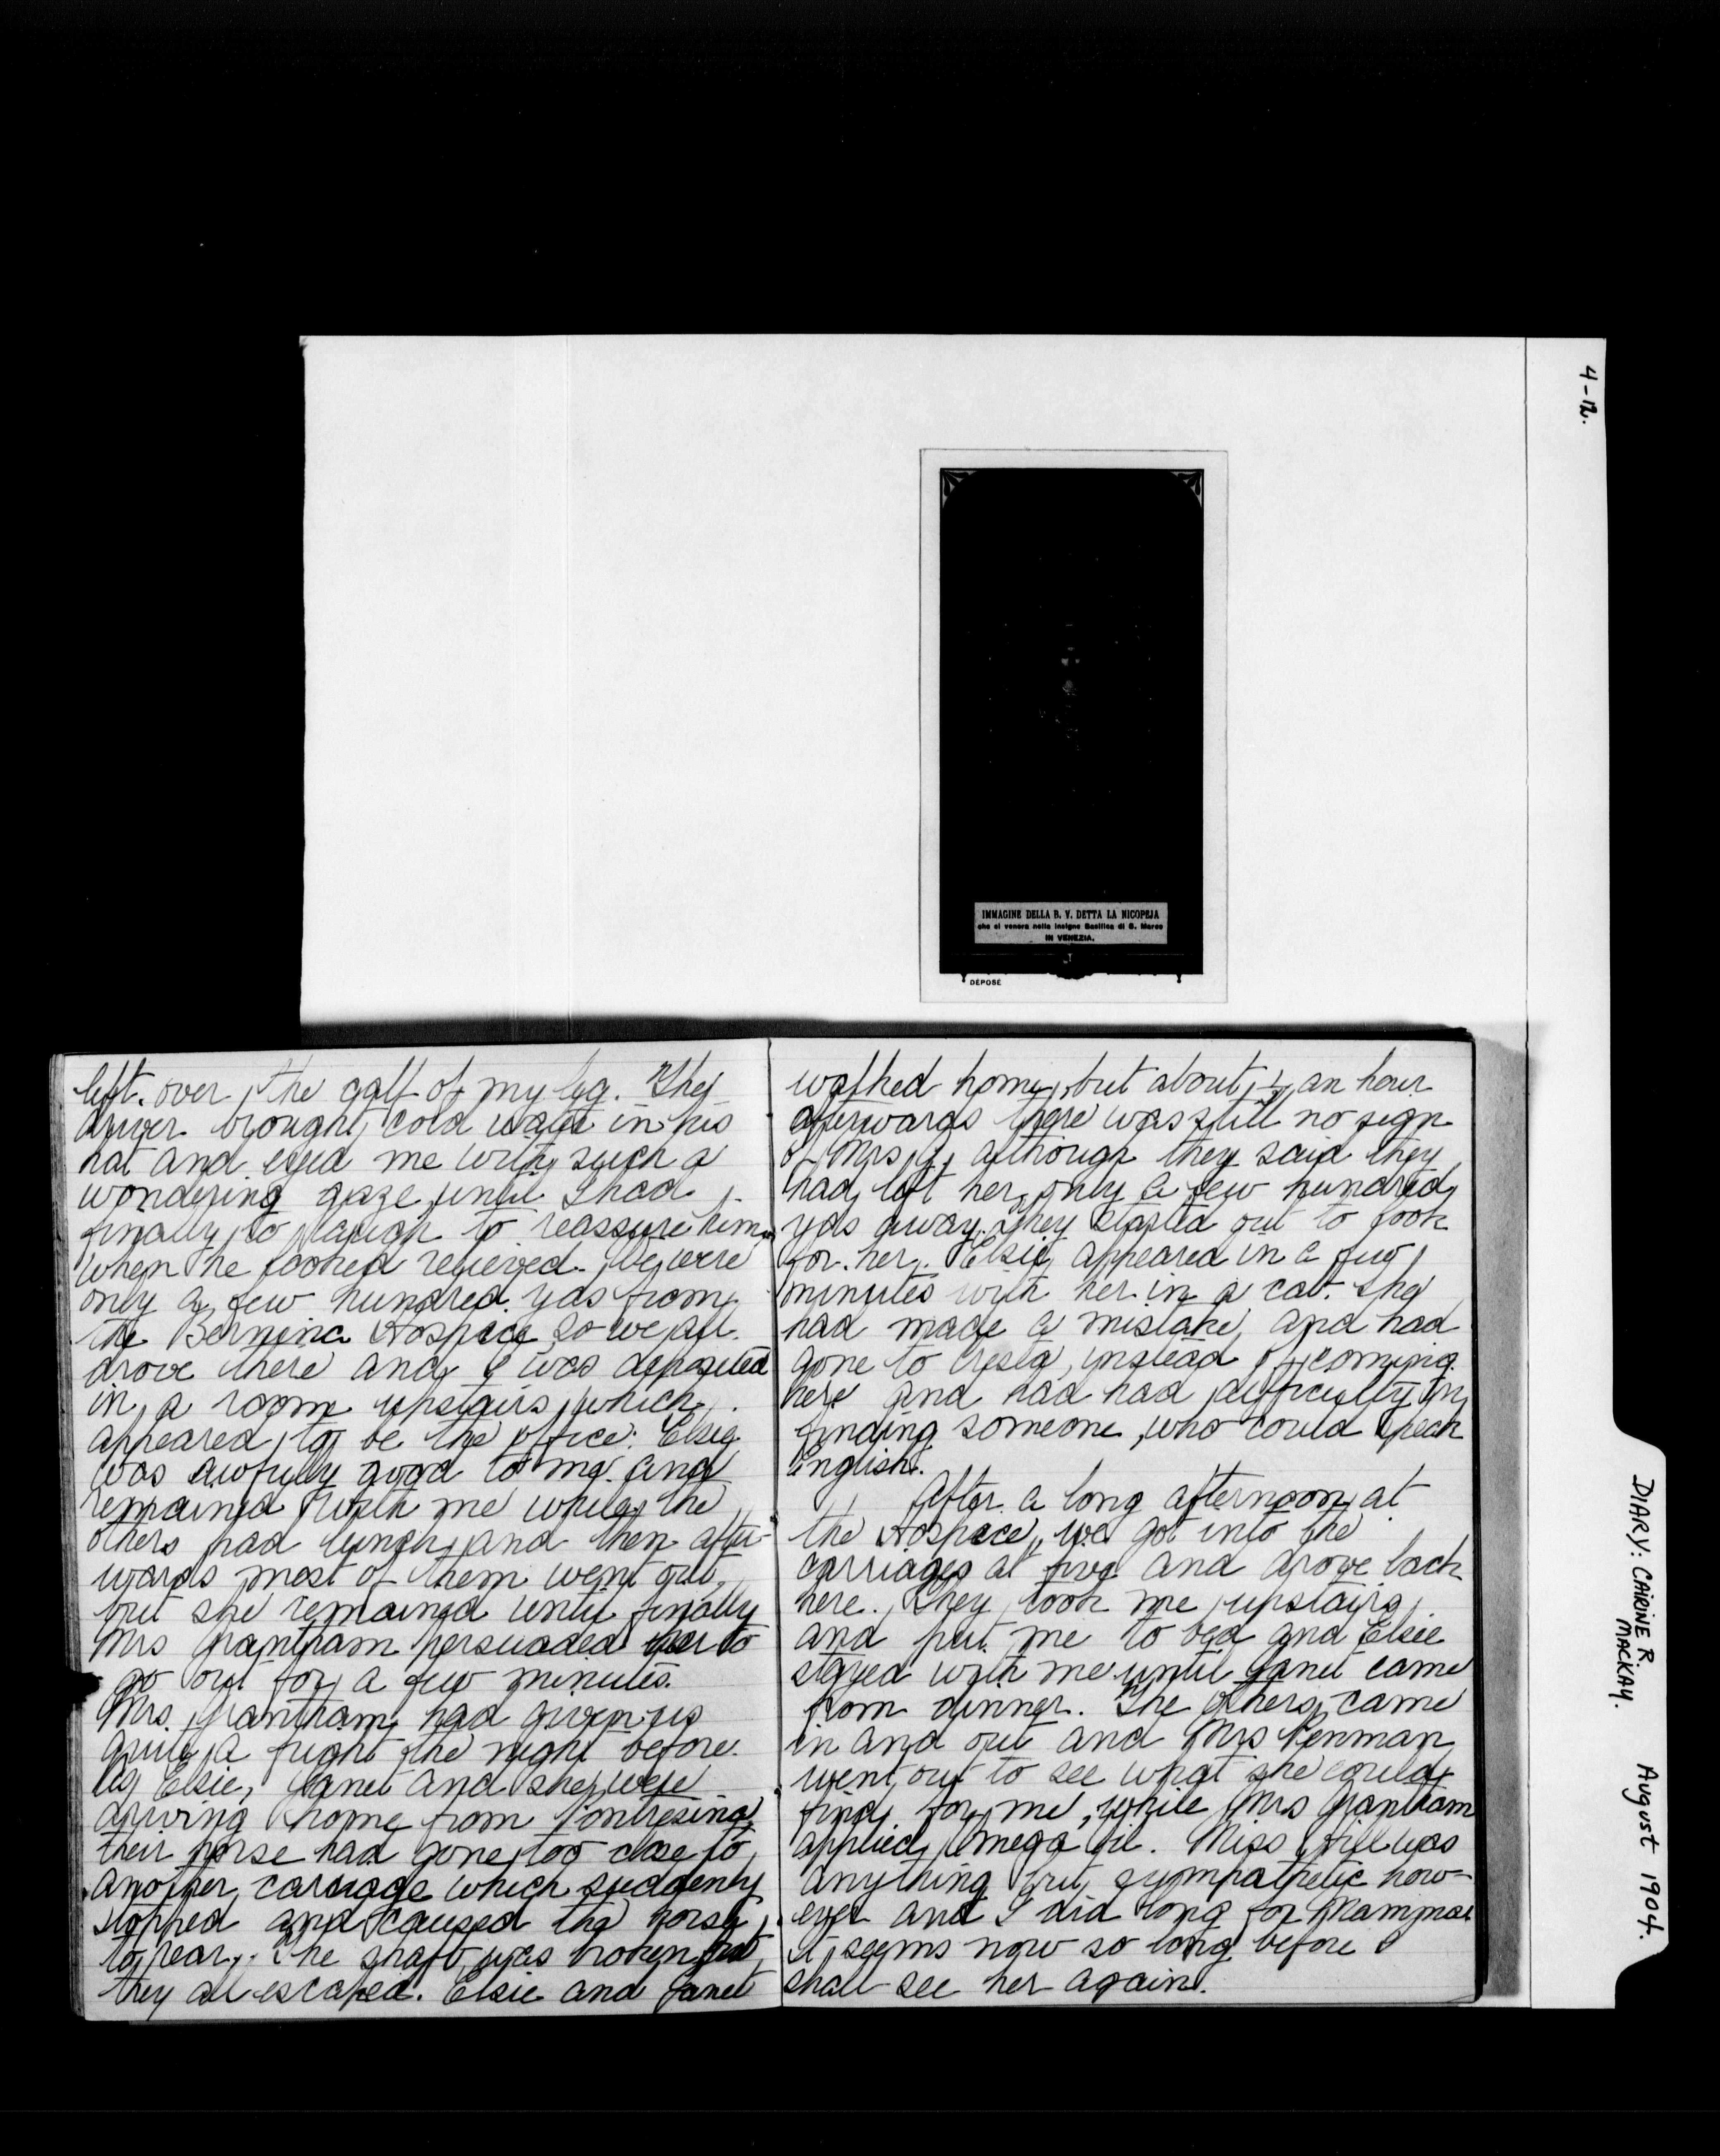 4-12.
IMMAGINE DELLA B. V. DETTA LA NICOPEJA
che si venera nella insigne Basilica di S. Marco
IN VENEZIA.
DEPOSÉ
left over the calf of my leg. The
driver brought cold water in his
hat and eyed me with such a
wondering gaze until I had
finally to laugh to reassure him
when he looked relieved. We were
only a few hundred yds from
the Bernina Hospice so we all
drove there and I was deposited
in a room upstairs which
appeared to be the office. Elsie
was awfully good to me and
remained with me while the
others had lunch and then after-
wards most of them went out,
but she remained until finally
Mrs Grantham persuaded her to
go out for a few minutes.
Mrs. Grantham had given us
quite a fright the night before.
As Elsie, Janet and she were
driving home from Pontresina
their horse had gone too close to
another carriage which suddenly
stopped and caused the horse
to rear. The shaft was broken but
they all escaped. Elsie and Janet
walked home, but about ½ an hour
afterwards there was still no sign
of Mrs G, although they said they
had left her only a few hundred
yds away. They started out to look
for her. Elsie appeared in a few
minutes with her in a cab. She
had made a mistake and had
gone to Cresta instead of coming
here and had had difficulty in
finding someone, who could speak
English.
After a long afternoon at
the Hospice, we got into the
carriages at five and drove back
here. They took me upstairs
and put me to bed and Elsie
stayed with me until Janet came
from dinner. The others came
in and out and Mrs Penman
went out to see what she could
find for me, while Mrs Grantham
applied omega oil. Miss Hill was
anything but sympathetic how-
ever and I did long for Mamma
It seems now so long before I
shall see her again.
DIARY: CAIRINE R. MACKAY.
August 1904.